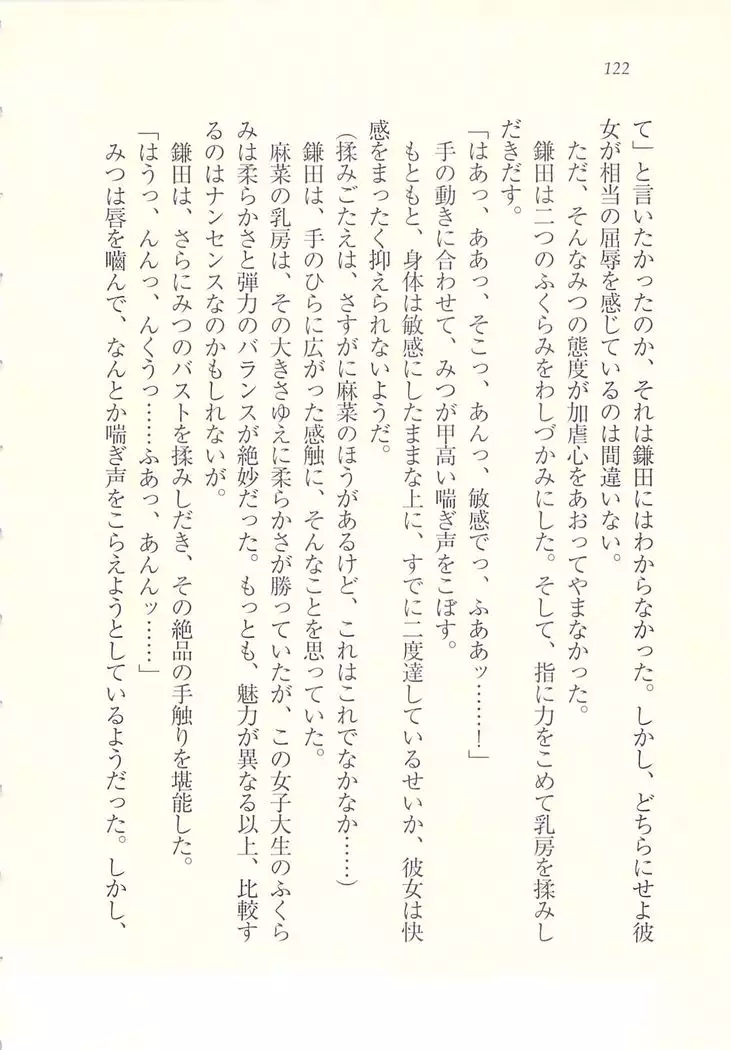 122
て」と言いたかったのか、それは鎌田にはわからなかった。しかし、どちらにせよ彼
女が相当の屈辱を感じているのは間違いない。
ただ、そんなみつの態度が加虐心をあおってやまなかった。
鎌田は二つのふくらみをわしづかみにした。そして、指に力をこめて乳房を揉みし
だきだす。
「はあっ、ああっ、そこっ、あんっ、敏感でっ、ふああッ……！」
手の動きに合わせて、みつが甲高い喘ぎ声をこぼす。
もともと、身体は敏感にしたままな上に、すでに二度達しているせいか、彼女は快
感をまったく抑えられないようだ。
（揉みごたえは、さすがに麻菜のほうがあるけど、これはこれでなかなか……）
鎌田は、手のひらに広がった感触に、そんなことを思っていた。
麻菜の乳房は、その大きさゆえに柔らかさが勝っていたが、この女子大生のふくら
みは柔らかさと弾力のバランスが絶妙だった。もっとも、魅力が異なる以上、比較す
るのはナンセンスなのかもしれないが。
鎌田は、さらにみつのバストを揉みしだき、その絶品の手触りを堪能した。
「はうっ、んんっ、んくうっ……ふあっ、あんんッ……」
みつは唇を噛んで、なんとか喘ぎ声をこらえようとしているようだった。しかし、